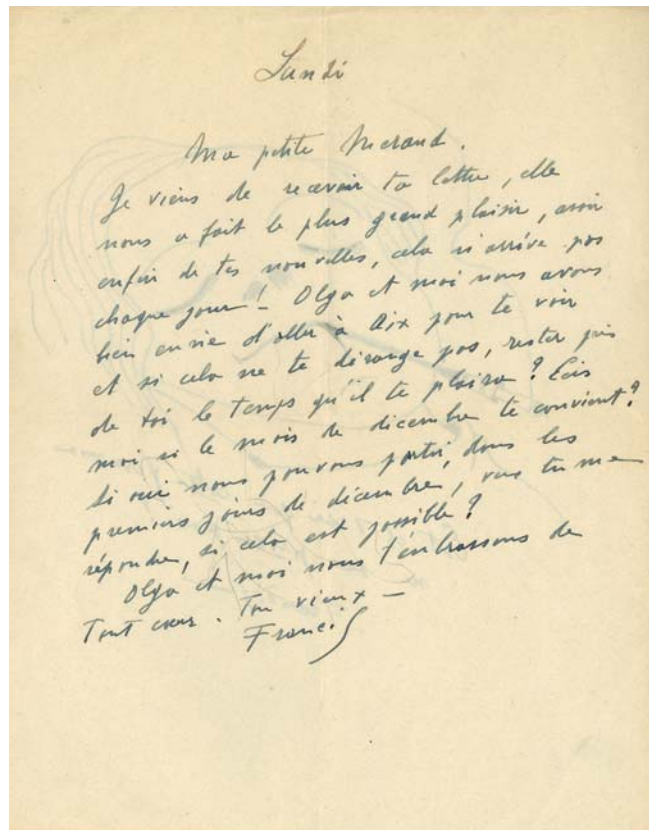 Lundi
Ma petite Meraud.
Je viens de recevoir ta lettre, elle
nous a fait le plus grand plaisir, avoir
enfin de tes nouvelles, cela n'arrive pas
chaque jour! Olga et moi nous avons
bien envie d'aller à Aix pour te voir
et si cela ne te dérange pas, rester près
de toi le temps qu'il te plaira? Écis
moi si le mois de décembre te convient?
Si oui nous pouvons partir, dans les
premiers jours de décembre, veux tu me
répondre, si cela est possible?
Olga et moi nous t'embrassons de
Tout cœur. Ton vieux –
Francis